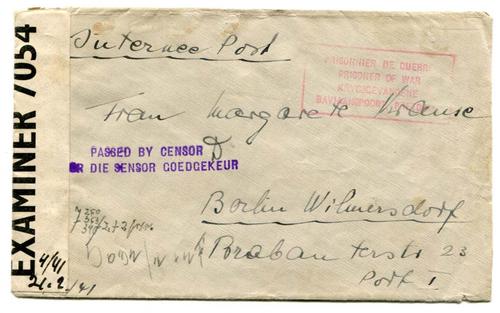 EXAMINER 7054
Internee Post
PRISONNIER DE GUERRE
PRISONER OF WAR
KRYGSGEVANGENE
Frau Margarete Krause
PASSED BY CENSOR
DIE SENSOR GOEDGEKEUR
D
Berlin Wilmersdorf
Brabanterstr 23
Port I
4/41
21.2./41